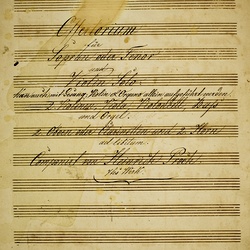 Offertorium
für
Sopran oder Tenor
und
Violin Solo
kann auch mit Gesang, Violin u. Organo allein aufgeführt werden
2 Violinen, Viola, Violoncell, Bass
und Orgel.
2 Oboen oder Clarinetten und 2 Horn
ad libitum.
Componirt von Heinrich Proch
Werk